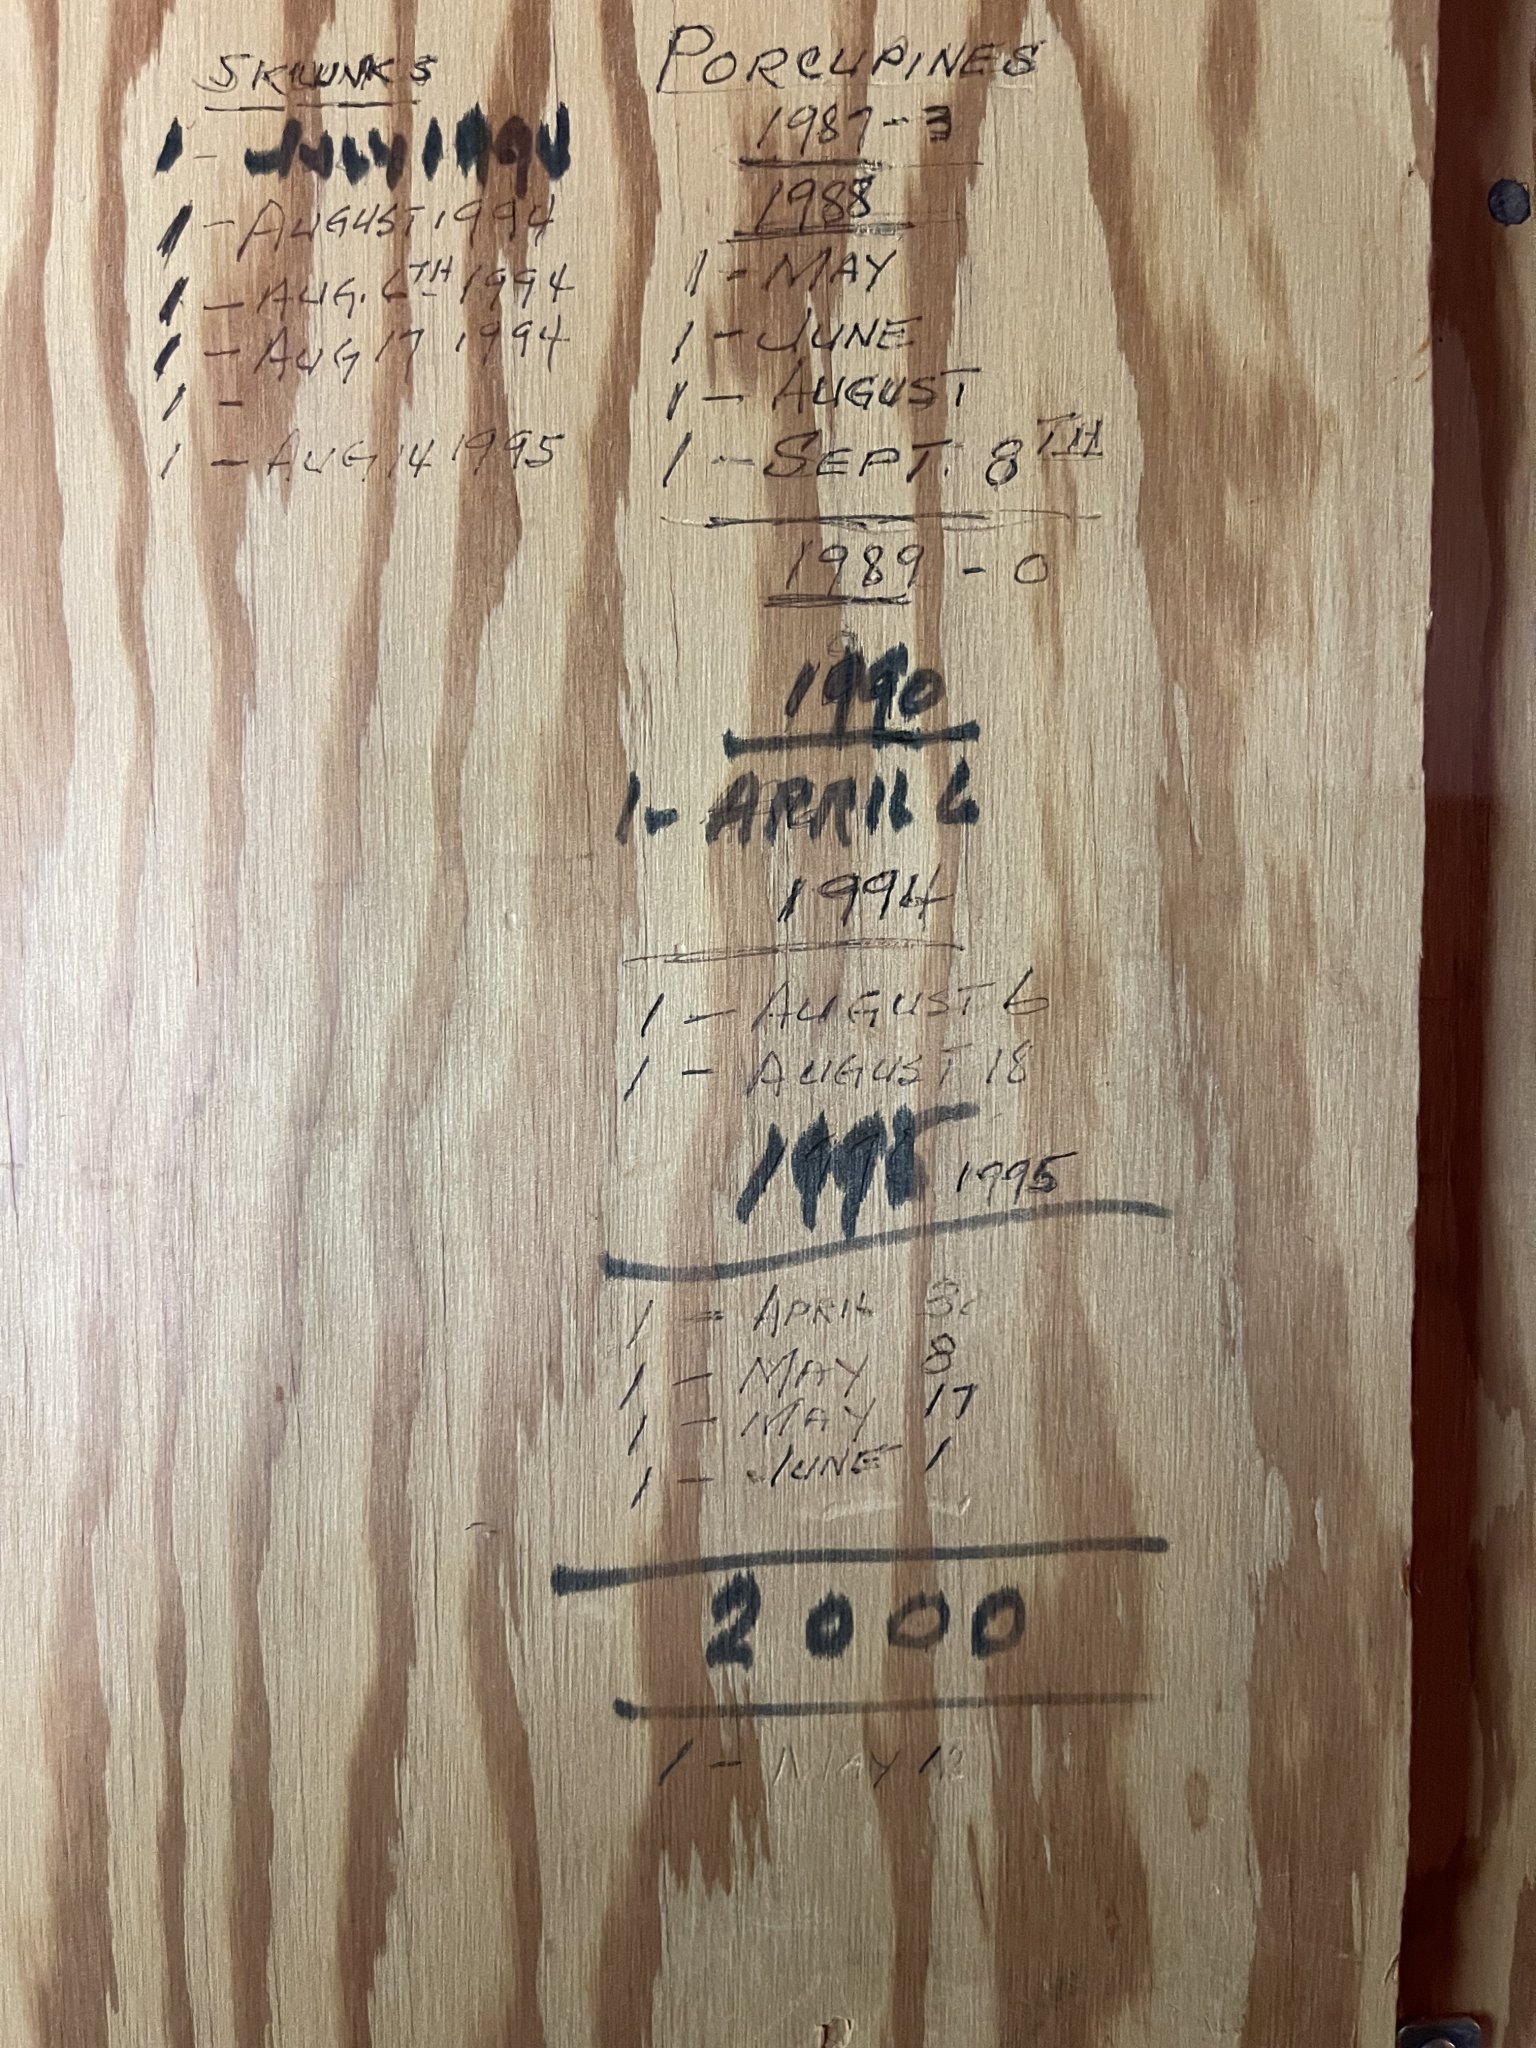 SKUNKS
1 - JULY 1994
1 - AUGUST 1994
1 - AUG. 6TH 1994
1 - AUG 17 1994
1 -
1 - AUG 14 1995
PORCUPINES
1987 - 3
1988
1 - MAY
1 - JUNE
1 - AUGUST
1 - SEPT. 8TH
1989 - 0
1990
1 - APRIL 6
1994
1 - AUGUST 6
1 - AUGUST 18
1995 1995
1 - APRIL
1 - MAY 8
1 - MAY 17
1 - JUNE 1
2000
1 - MAY 12